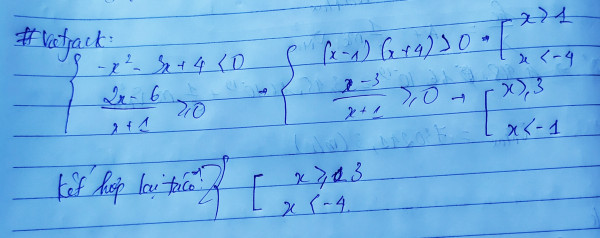 # Vietjack:
{ -x² - 3x + 4 < 0 → { (x-1)(x+4) > 0 → [ x > 1
x < -4
2x - 6 / x + 1 ≥ 0 x - 3 / x + 1 ≥ 0 → [ x ≥ 3
x < -1
Kết hợp lại ta có: [ x ≥ 3
x < -4